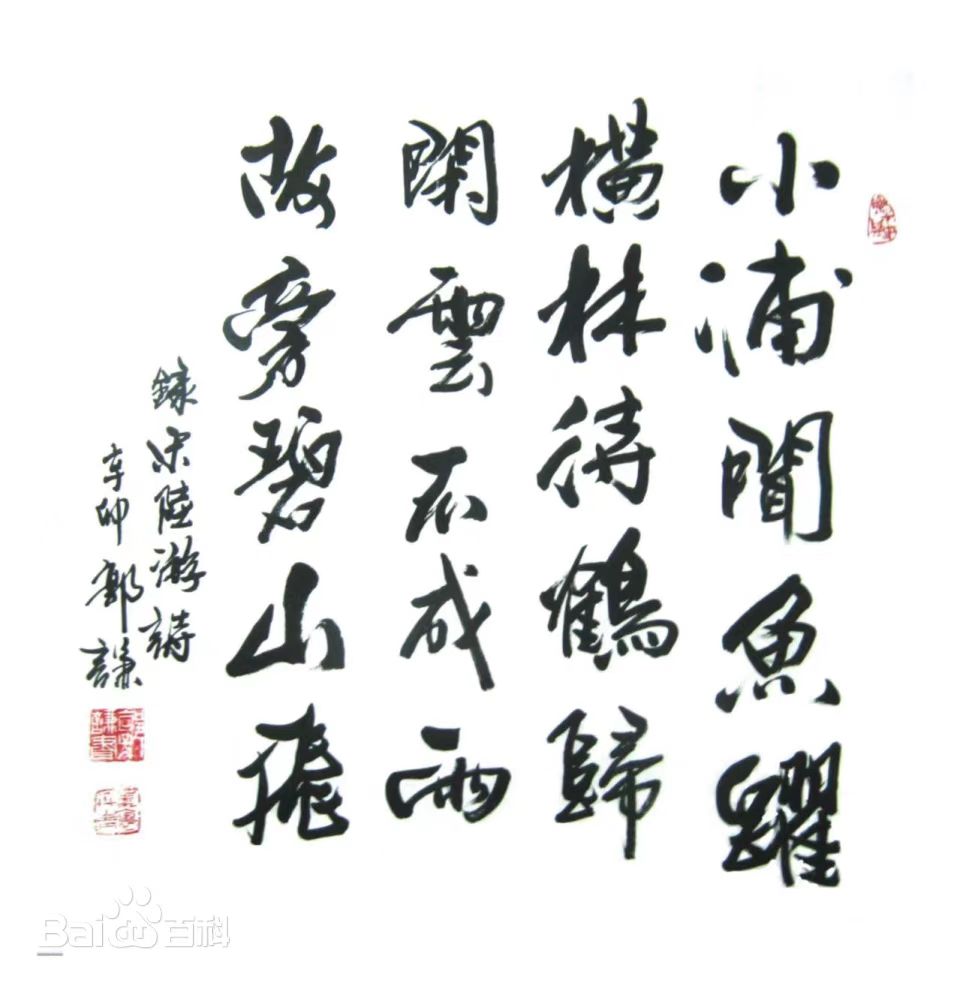 小浦聞魚躍
橫林待鶴歸
閑雲不成雨
故旁碧山飛
錄宋陸游詩
辛卯郭謙
Bai du 百科